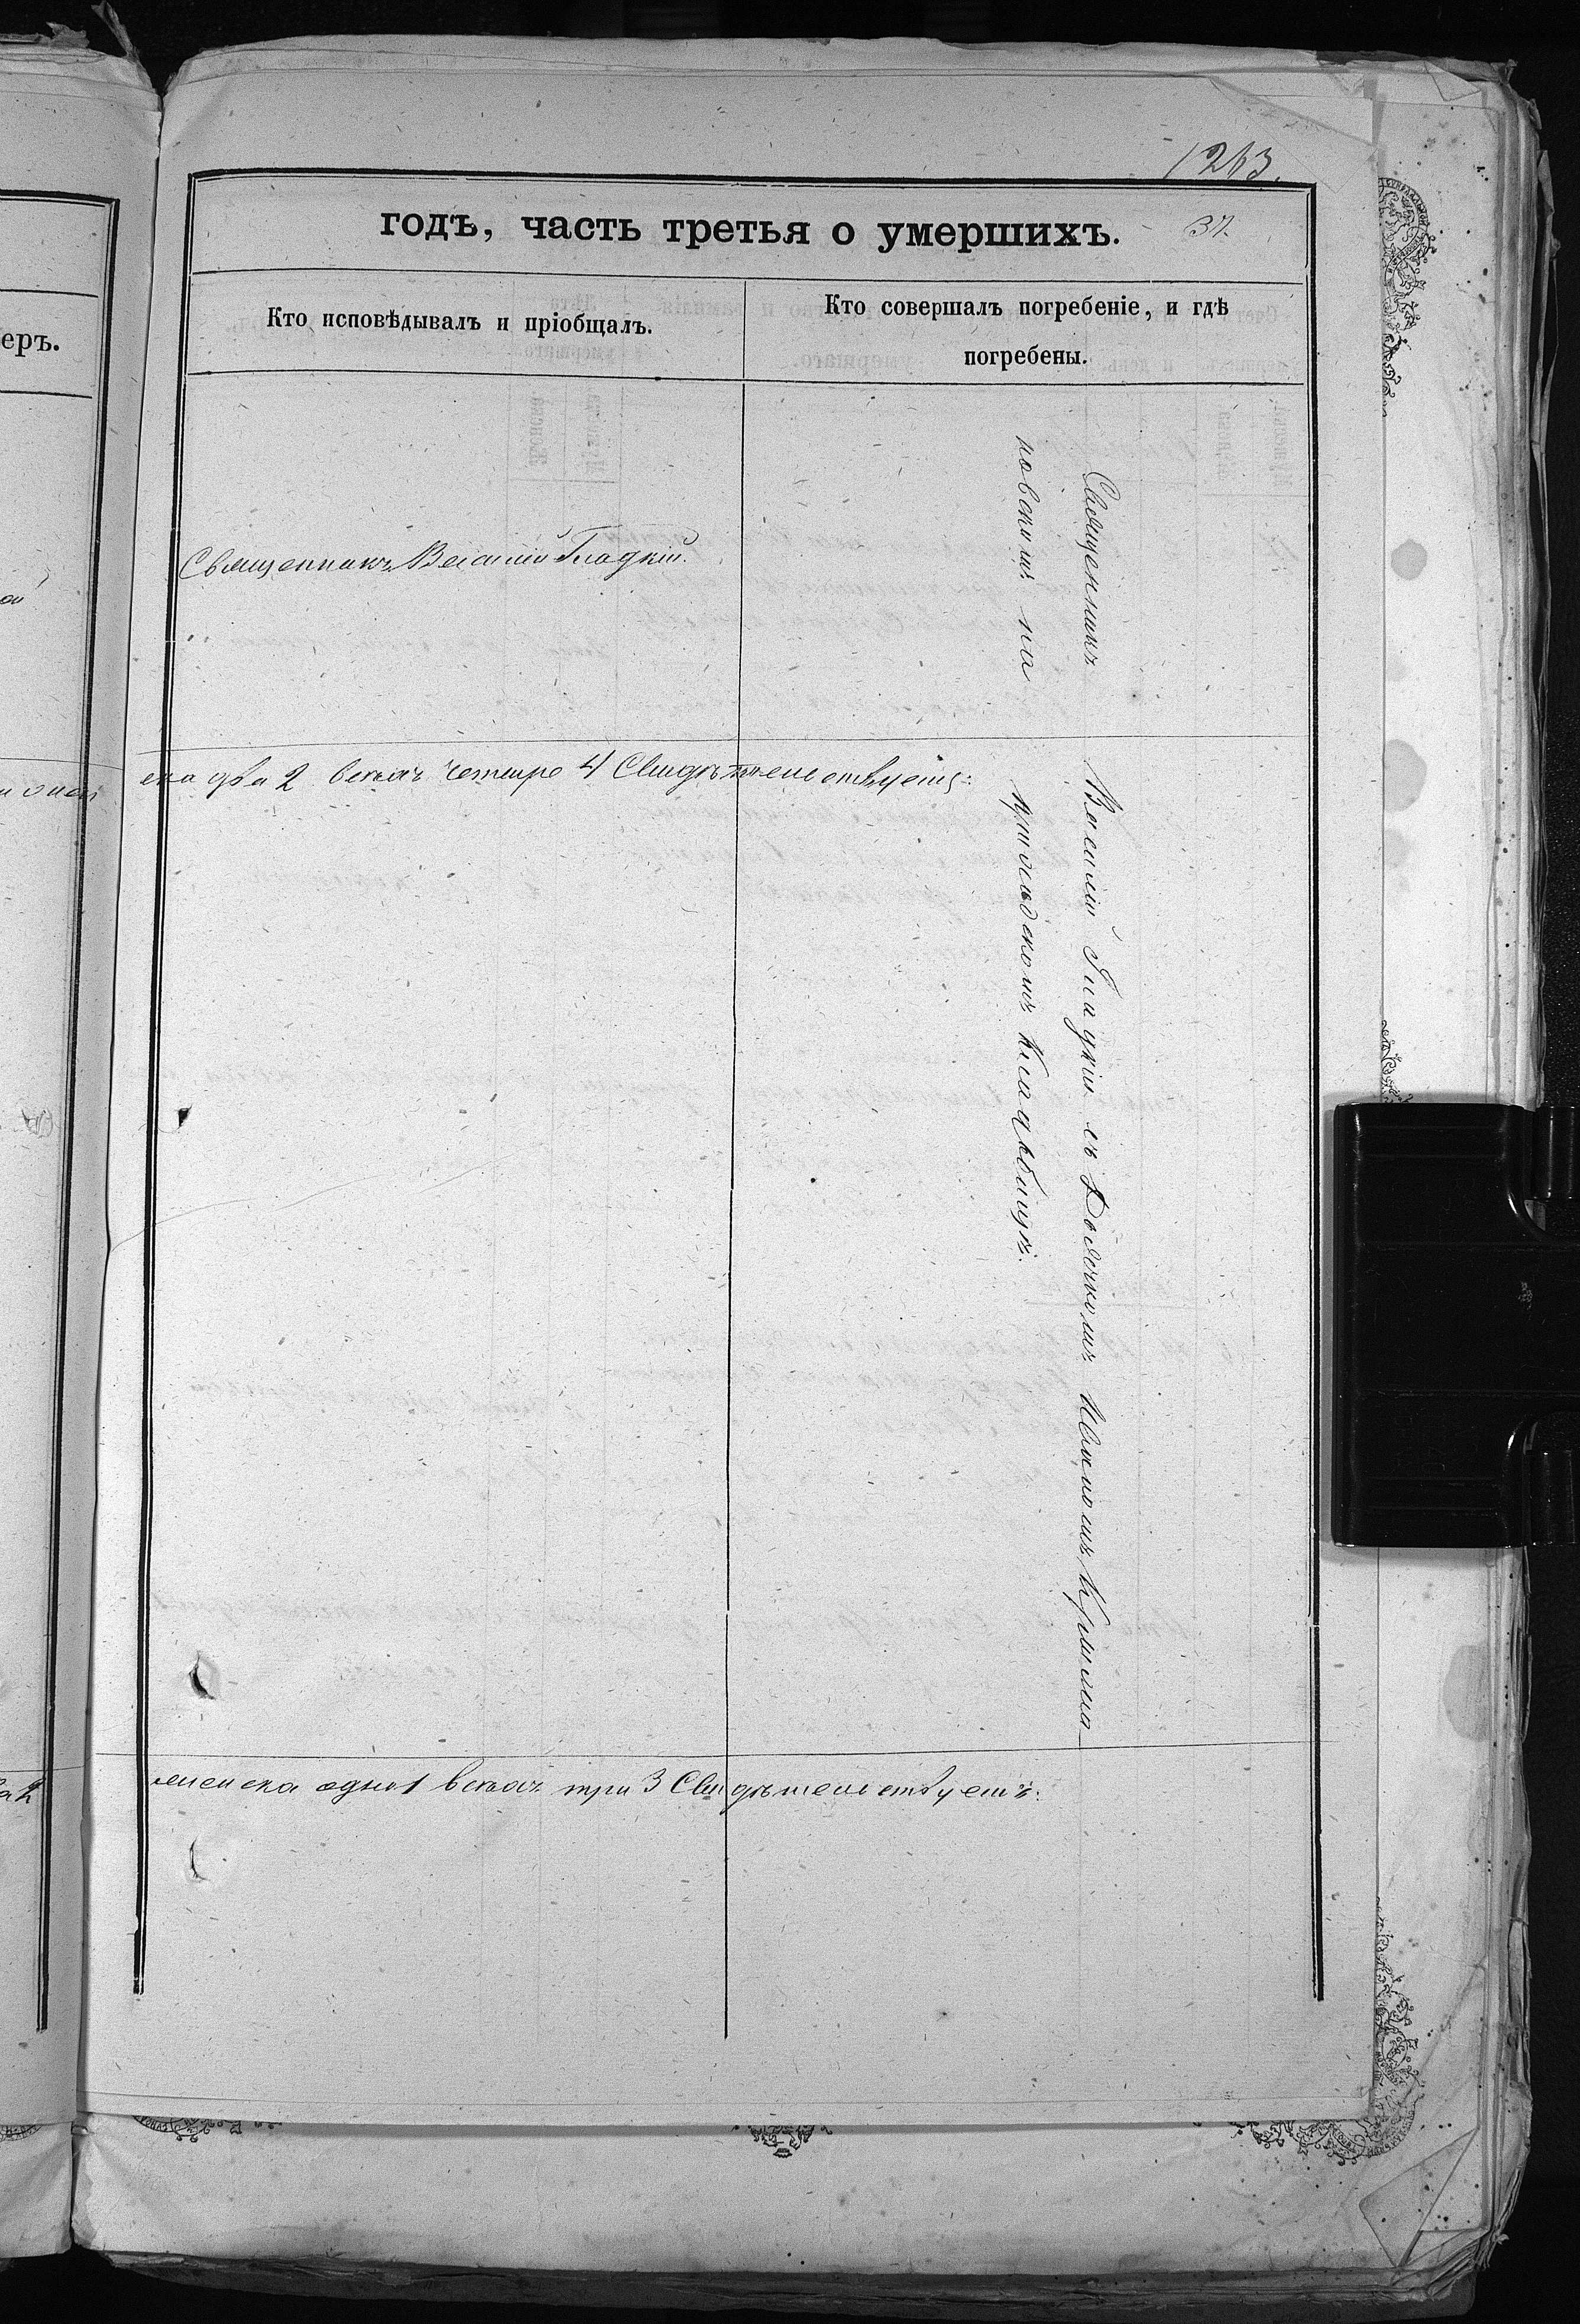 1263.
годъ, часть третья о умершихъ.
37.
Кто исповѣдывалъ и пріобщалъ.
Кто совершалъ погребеніе, и гдѣ
погребены.
еръ.
Священникъ Василій Гладкій.
Священникъ Василій Гладкій съ Дьячкомъ Иваномъ Крыжа
новскимъ на приходскомъ кладбищѣ.
ска два 2 всѣхъ четыре 4 Свидѣтельствуетъ:
женска одна 1 всѣхъ три 3 Свидѣтельствуетъ: